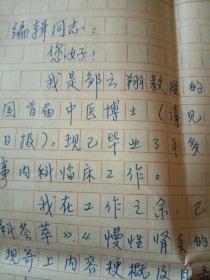 编辑同志:
您好!
我是邹云翔教授的
国首届中医博士(请见
日报)。现已毕业3年多
事内科临床工作。
我在工作之余,已
科荟萃》、《慢性肾炎的
现寄上内容梗概及目